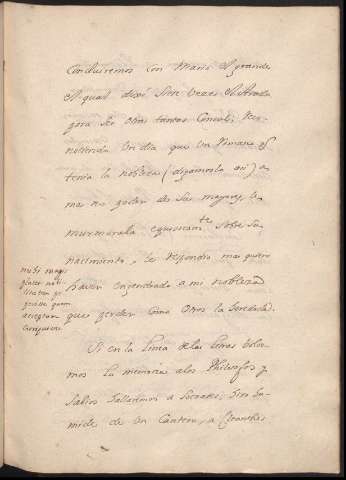 Concluiremos con Mario el grande
el qual dexó siete vezes el Arado
para ser otras tantas Consul;
un dia que un Romano q
tenia la nobleza (digamoslo asi) a
mas no poder de sus mayores, le
murmurala equivocam.te sobre su
nacimiento, le respondio mas quiero
haver engendrado a mi nobleza
que perder como otros la heredada.
mihi magis
placet nobi-
litatem
quam
acceptam
corrumpere
Si en la linea de las letras bolve
mos la memoria a los Philosofos y
Sabios hallaremos a Socrates, hijo hu-
milde de un Cantero, a Cleanthes